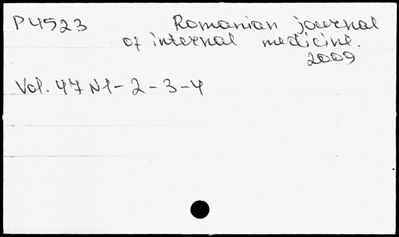 P4523 Romanian journal
of internal medicine.
2009
Vol. 47 N1-2-3-4